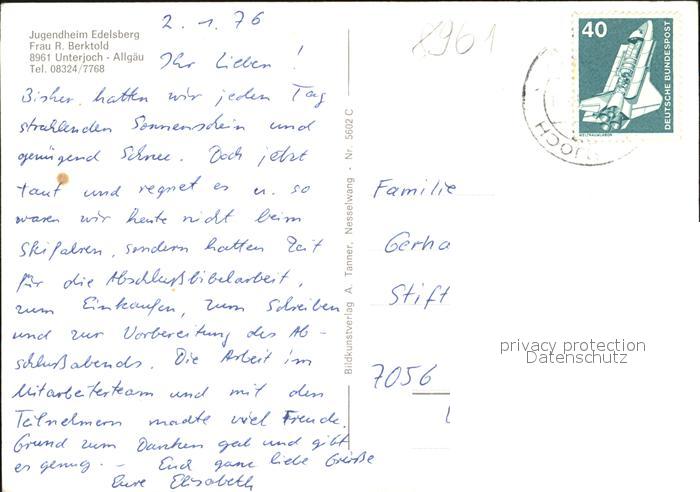 Jugendheim Edelsberg
Frau R. Berktold
8961 Unterjoch - Allgäu
Tel. 08324/7768
2.1.76
Ihr Lieben!
Bisher hatten wir jeden Tag
strahlenden Sonnenschein und
genügend Schnee. Doch jetzt
taut und regnet es u. so
waren wir heute nicht beim
Skifahren, sondern hatten Zeit
für die Abschlußbibelarbeit,
zum Einkaufen, zum Schreiben
und zur Vorbereitung des Ab-
schlußabends. Die Arbeit im
Mitarbeiterteam und mit den
Teilnehmern machte viel Freude.
Grund zum Danken gab und gibt
es genug. - Euch ganz liebe Grüße
Eure Elisabeth
Bildkunstverlag A. Tanner, Nesselwang - Nr. 5602 C
8961
40
DEUTSCHE BUNDESPOST
WELTRAUMLABOR
Familie
Gerha
Stift
7056
privacy protection
Datenschutz